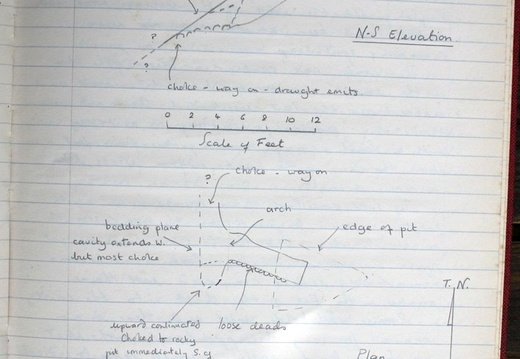 N-S Elevation
?
?
choke - way on - draught emits
0 2 4 6 8 10 12
Scale of Feet
?
choke - way on
arch
bedding plane
cavity extends W.
but most choke
edge of pit
T. N.
upward continuation loose deads
choked to rocky
pit immediately S. of
Plan